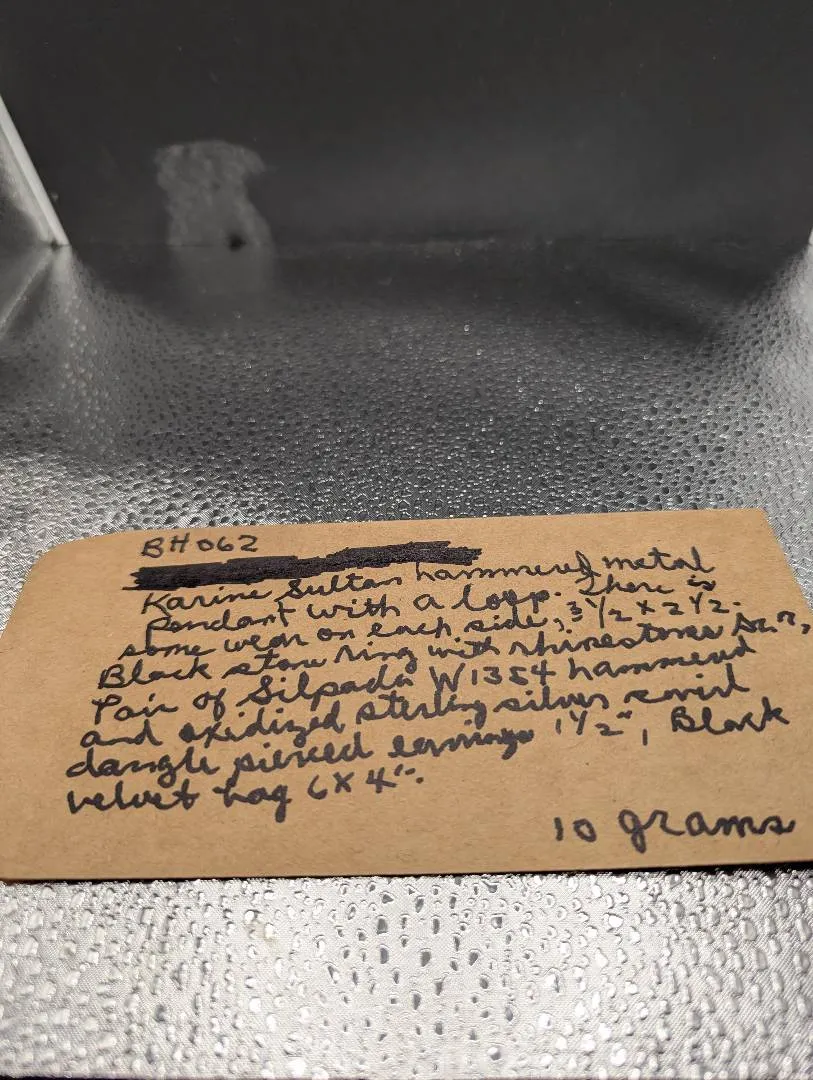 BH062
Karine Sultan hammered metal
pendant with a loop. There is
some wear on each side, 3 1/2 x 2 1/2.
Black stone ring with rhinestones Sz 7,
Pair of Silpada W1354 hammered
and oxidized sterling silver swirl
dangle pierced earrings 1 1/2", Black
velvet bag 6 x 4".
10 grams